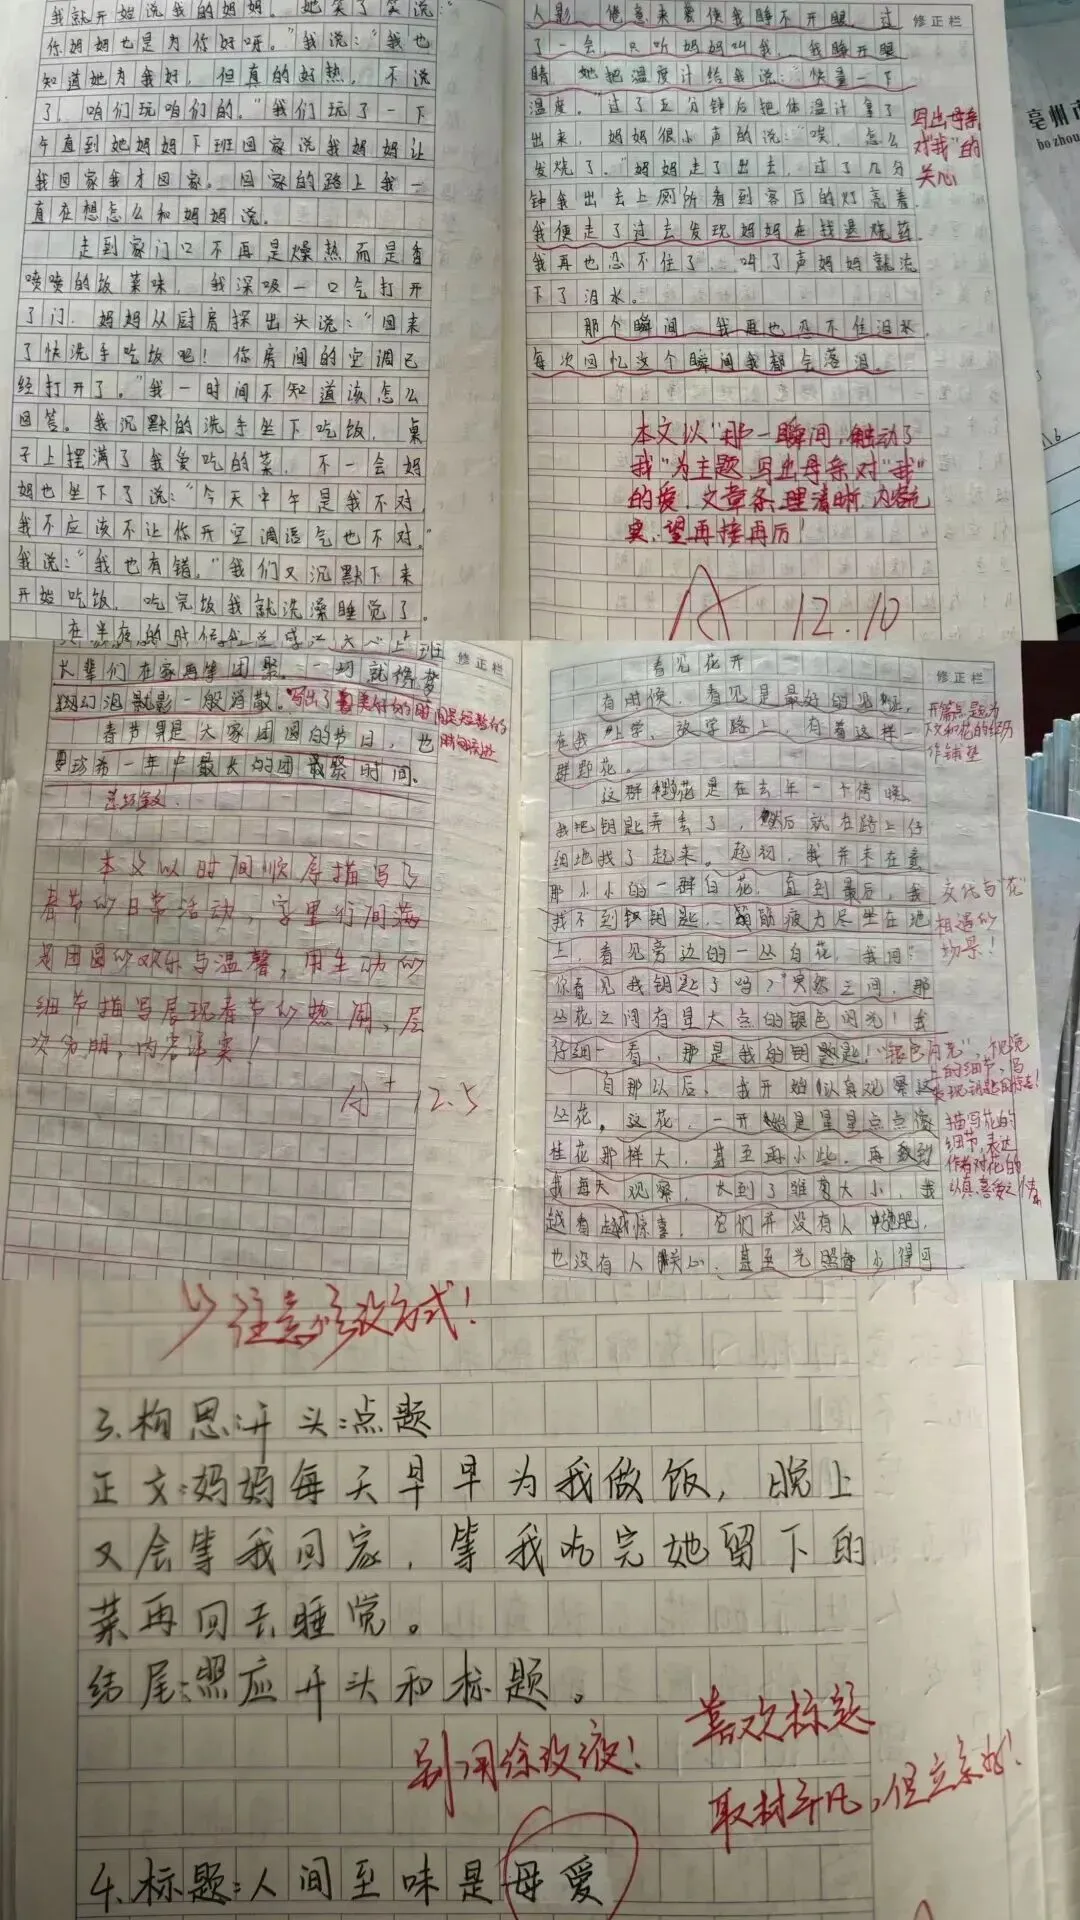 我就开始说我的妈妈。她笑了笑说:“
你妈妈也是为你好呀。”我说:“我也
知道她为我好,但真的好热,不说
了,咱们玩咱们的。”我们玩了一下
午直到她妈妈下班回家说我妈妈让
我回家我才回家。回家的路上我一
直在想怎么和妈妈说。
走到家门口不再是燥热而是香
喷喷的饭菜味,我深吸一口气打开
了门,妈妈从厨房探出头说:“回来
了快洗手吃饭吧!你房间的空调已
经打开了。”我一时间不知道该怎么
回答。我沉默的洗手坐下吃饭,桌
子上摆满了我爱吃的菜,不一会妈
妈也坐下了说:“今天中午是我不对,
我不应该不让你开空调语气也不对。”
我说:“我也有错。”我们又沉默下来
开始吃饭,吃完饭我就洗澡睡觉了。
在半夜的时候我总感
人影,倦意来袭使我睁不开眼,过
了一会,只听妈妈叫我,我睁开眼
睛,她把温度计给我说:“快量一下
温度。”过了五分钟后把体温计拿了
出来,妈妈很小声的说:“唉,怎么
发烧了。”妈妈走了出去,过了几分
钟我出去上厕所看到客厅的灯亮着,
我便走了过去发现妈妈在找退烧药,
我再也忍不住了,叫了声妈妈就流
下了泪水。
那个瞬间,我再也忍不住泪水,
每次回忆这个瞬间我都会落泪。
修正栏
写出母亲
对“我”的
关心
本文以“那一瞬间,触动了
我”为主题,写出母亲对“我”
的爱,文章条理清晰,内容充
实,望再接再厉!
A 12.10
亳州市
bo zhou
长辈们在家再等团聚。一切就像梦
幻泡影一般消散。
春节果是大家团圆的节日,也
要珍惜一年中最长的团聚时间。
总结全文
修正栏
本文以时间顺序描写了
春节的日常活动,字里行间满
是团圆的欢乐与温馨,用生动的
细节描写展现春节的热闹,层
次分明,内容详实!
A+ 12.5
看见花开
修正栏
有时候,看见是最好的见证,
在我上学、放学路上,有着这样一
群野花。
这群野花是在去年一个傍晚,
我把钥匙弄丢了,然后就在路上仔
细地找了起来。起初,我并未在意
那小小的一群白花,直到最后,我
找不到钥匙,筋疲力尽坐在地
上,看见旁边的一丛白花,我问:“
你看见我钥匙了吗?”突然之间,那
丛花之间有星大点的银色闪光!我
仔细一看,那是我的钥匙!
自那以后,我开始认真观察这
丛花。这花,一开始是星星点点像
桂花那样大,甚至再小些,再到
我每天观察,长到了雏菊大小,我
越看越惊喜,它们并没有人施肥,
也没有人关心,甚至光照都少得可
开篇点题,为
下文和花的经历
作铺垫
交代与“花”
相遇的
场景!
描写花的
细节,表达
作者对花的
认真、喜爱之情
注意修改方式!
3.构思:开头:点题
正文:妈妈每天早早为我做饭,晚上
又会等我回家,等我吃完她留下的
菜再回去睡觉。
结尾:照应开头和标题。
别用涂改液!
喜欢标题
取材平凡,但立亲的!
4.标题:人间至味是母爱